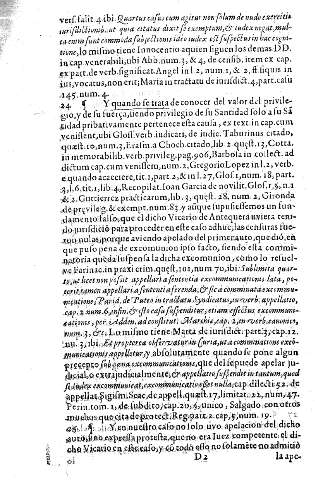 vers. fallit 4. ibi, Quartus casus cum agitur non solum de nudo exercitio
iurisdictionis
lo mismo tiene Innocentio aquien siguen los demas DD.
in cap. venerabili, ubi Abb. num. 3, & 4, de censib. item ex cap.
ex part. de verb. significat. Angel in l. 2, num. 1, & 2, ff. si quis in
ius, vocatus, non erit; Maria in tractatu de iurisdict. 4. part. casu
145. num. 4.
24 ¶ Y quando se trata de conocer del valor del privile-
gio, y de su fuerça, siendo privilegio de Su Santidad solo a su Sã
tidad privativamente pertenece esta causa, ex text. in cap. cum
venissent, ubi Glos. verb. iudicari, de iudic. Taburinus citado,
quæst. 10, num. 3, Erasm. a Choch. citado, lib. 2. quæst. 13, Cotta,
in memorabilib. verb. privileg. pag. 906, Barbosa in collect. ad
dictum cap. cum venissem, num. 2, Gregorio Lopez in l. 2, verb.
e quando acaeciere, tit. 1, part. 2, & in l. 27, Glos. 1, num. 18, part.
3, l. 6. tit. 1, lib. 4. Recopilat. Ioan Garcia de novilit. Glos. 1, §. n. 1
& 2, Gutierrez practicarum, lib. 3, quæst. 28, num. 2, Gironda
de privileg. & exempt. num. 82 y aunque supusiessemos un fun-
damento falso, que el dicho Vicario de Antequera uviera teni-
do jurisdició para proceder en este caso adhuc, las censuras fue-
ron nulas, porque aviendo apelado del primer auto, que dió, en
que puso pena de excomunion ipso facto, siendo ella commi-
natoria queda suspensa la dicha excomunion, como lo resuel-
ve Farinac. in praxi crim. quæst. 101, num. 70, ibi, Sublimita quar-
to, ut licet non possit appellari a sententia excommunicationis lata, po-
terit, tamen appellari a sententia ferenda, & sic a comminata excommu-
nicatione, Parid. de Puteo in tractatu Syndicatus,
cap. 2 num. 6, infin. & isto casu suspenditur, etiam effectus excommuni-
cationis, per. Addim. ad consletat. Marchie, cap. 2, in verb. canonice,
num. 3, &c. Lo mismo tiene Marta de iurisdict. part. 2, cap. 22
nu. 3, ibi. Et propterea observatur in Curia, ut a comminatione exc-
municationis appelletur, y absolutamente quando se pone algun
precepto sub pœna excommunicationis, que del se puede apelar ju-
dicial, o extrajudicialmente, & appellatio suspendit in tantum, quod
si iudex excommunicat, excommunicatio est nulla, cap dilecti 52. de
appellat. Sigism. Scac. de appell. quæst. 17, limitat. 22, num. 47.
Perin. tom. 1, de subdito, cap. 20, § unico, Salgado con otros
muchos que cita de protect. Reg. part. 2. cap. 5, num. 19.
25 ¶ Y en nuestro caso no solo uvo apelacion del dicho
auto, sino expressa protesta, que no era Iuez competente el di-
cho Vicario en este caso, y co todo esso no solamẽte no admitió
D 2
la ape-